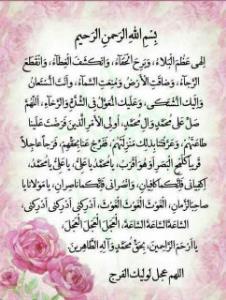 بِسْمِ اللهِ الرَحمنِ الرَحیم
اِلهی عَظُمَ الْبَلاءُ، وَبَرِحَ الْخَفاءُ، وَانْکَشَفَ الْغِطاءُ، وَانْقَطَعَ
الرَّجاءُ، وَضاقَتِ الْاَرْضُ وَمُنِعَتِ السَّماءُ، وَاَنْتَ الْمُسْتَعانُ
وَاِلَیْکَ الْمُشْتَکی، وَعَلَیْکَ الْمُعَوَّلُ فِی الشِّدَّةِ وَالرَّخاءِ، اَللّهُمَّ
صَلِّ عَلی مُحَمَّدٍ وَالِ مُحَمَّدٍ، اُولِی الْاَمْرِ الَّذینَ فَرَضْتَ عَلَیْنا
طاعَتَهُمْ، وَعَرَّفْتَنا بِذلِکَ مَنْزِلَتَهُمْ، فَفَرِّجْ عَنّا بِحَقِّهِمْ، فَرَجاً عاجِلاً
قَریباً کَلَمْحِ الْبَصَرِ اَوْ هُوَ اَقْرَبُ، یا مُحَمَّدُ یا عَلِیُّ، یا عَلِیُّ یا مُحَمَّدُ،
اِکْفِیانی فَاِنَّکُما کافِیانِ، وَانْصُرانی فَاِنَّکُما ناصِرانِ، یا مَوْلانا یا
صاحِبَ الزَّمانِ، الْغَوْثَ، الْغَوْثَ، الْغَوْثَ، اَدْرِکْنی، اَدْرِکْنی، اَدْرِکْنی،
السّاعَةَ السّاعَةَ السّاعَةَ، الْعَجَلَ، الْعَجَلَ، الْعَجَلَ،
یا اَرْحَمَ الرّاحِمینَ، بِحَقِّ مُحَمَّدٍ وَآلِهِ الطّاهِرینَ
اللهم عجل لولیک الفرج